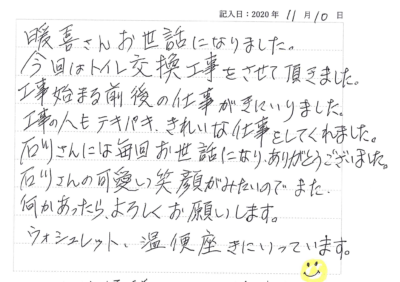 記入日：2020年 11月 10日
暖喜さんお世話になりました。
今回はトイレ交換工事をさせて頂きました。
工事始まる前後の仕事がきにいりました。
工事の人もテキパキ、きれいな仕事をしてくれました。
石川さんには毎回お世話になり、ありがとうございました。
石川さんの可愛い笑顔がみたいので また、
何かあったら、よろしくお願いします。
ウォシュレット、温便座きにいっています。